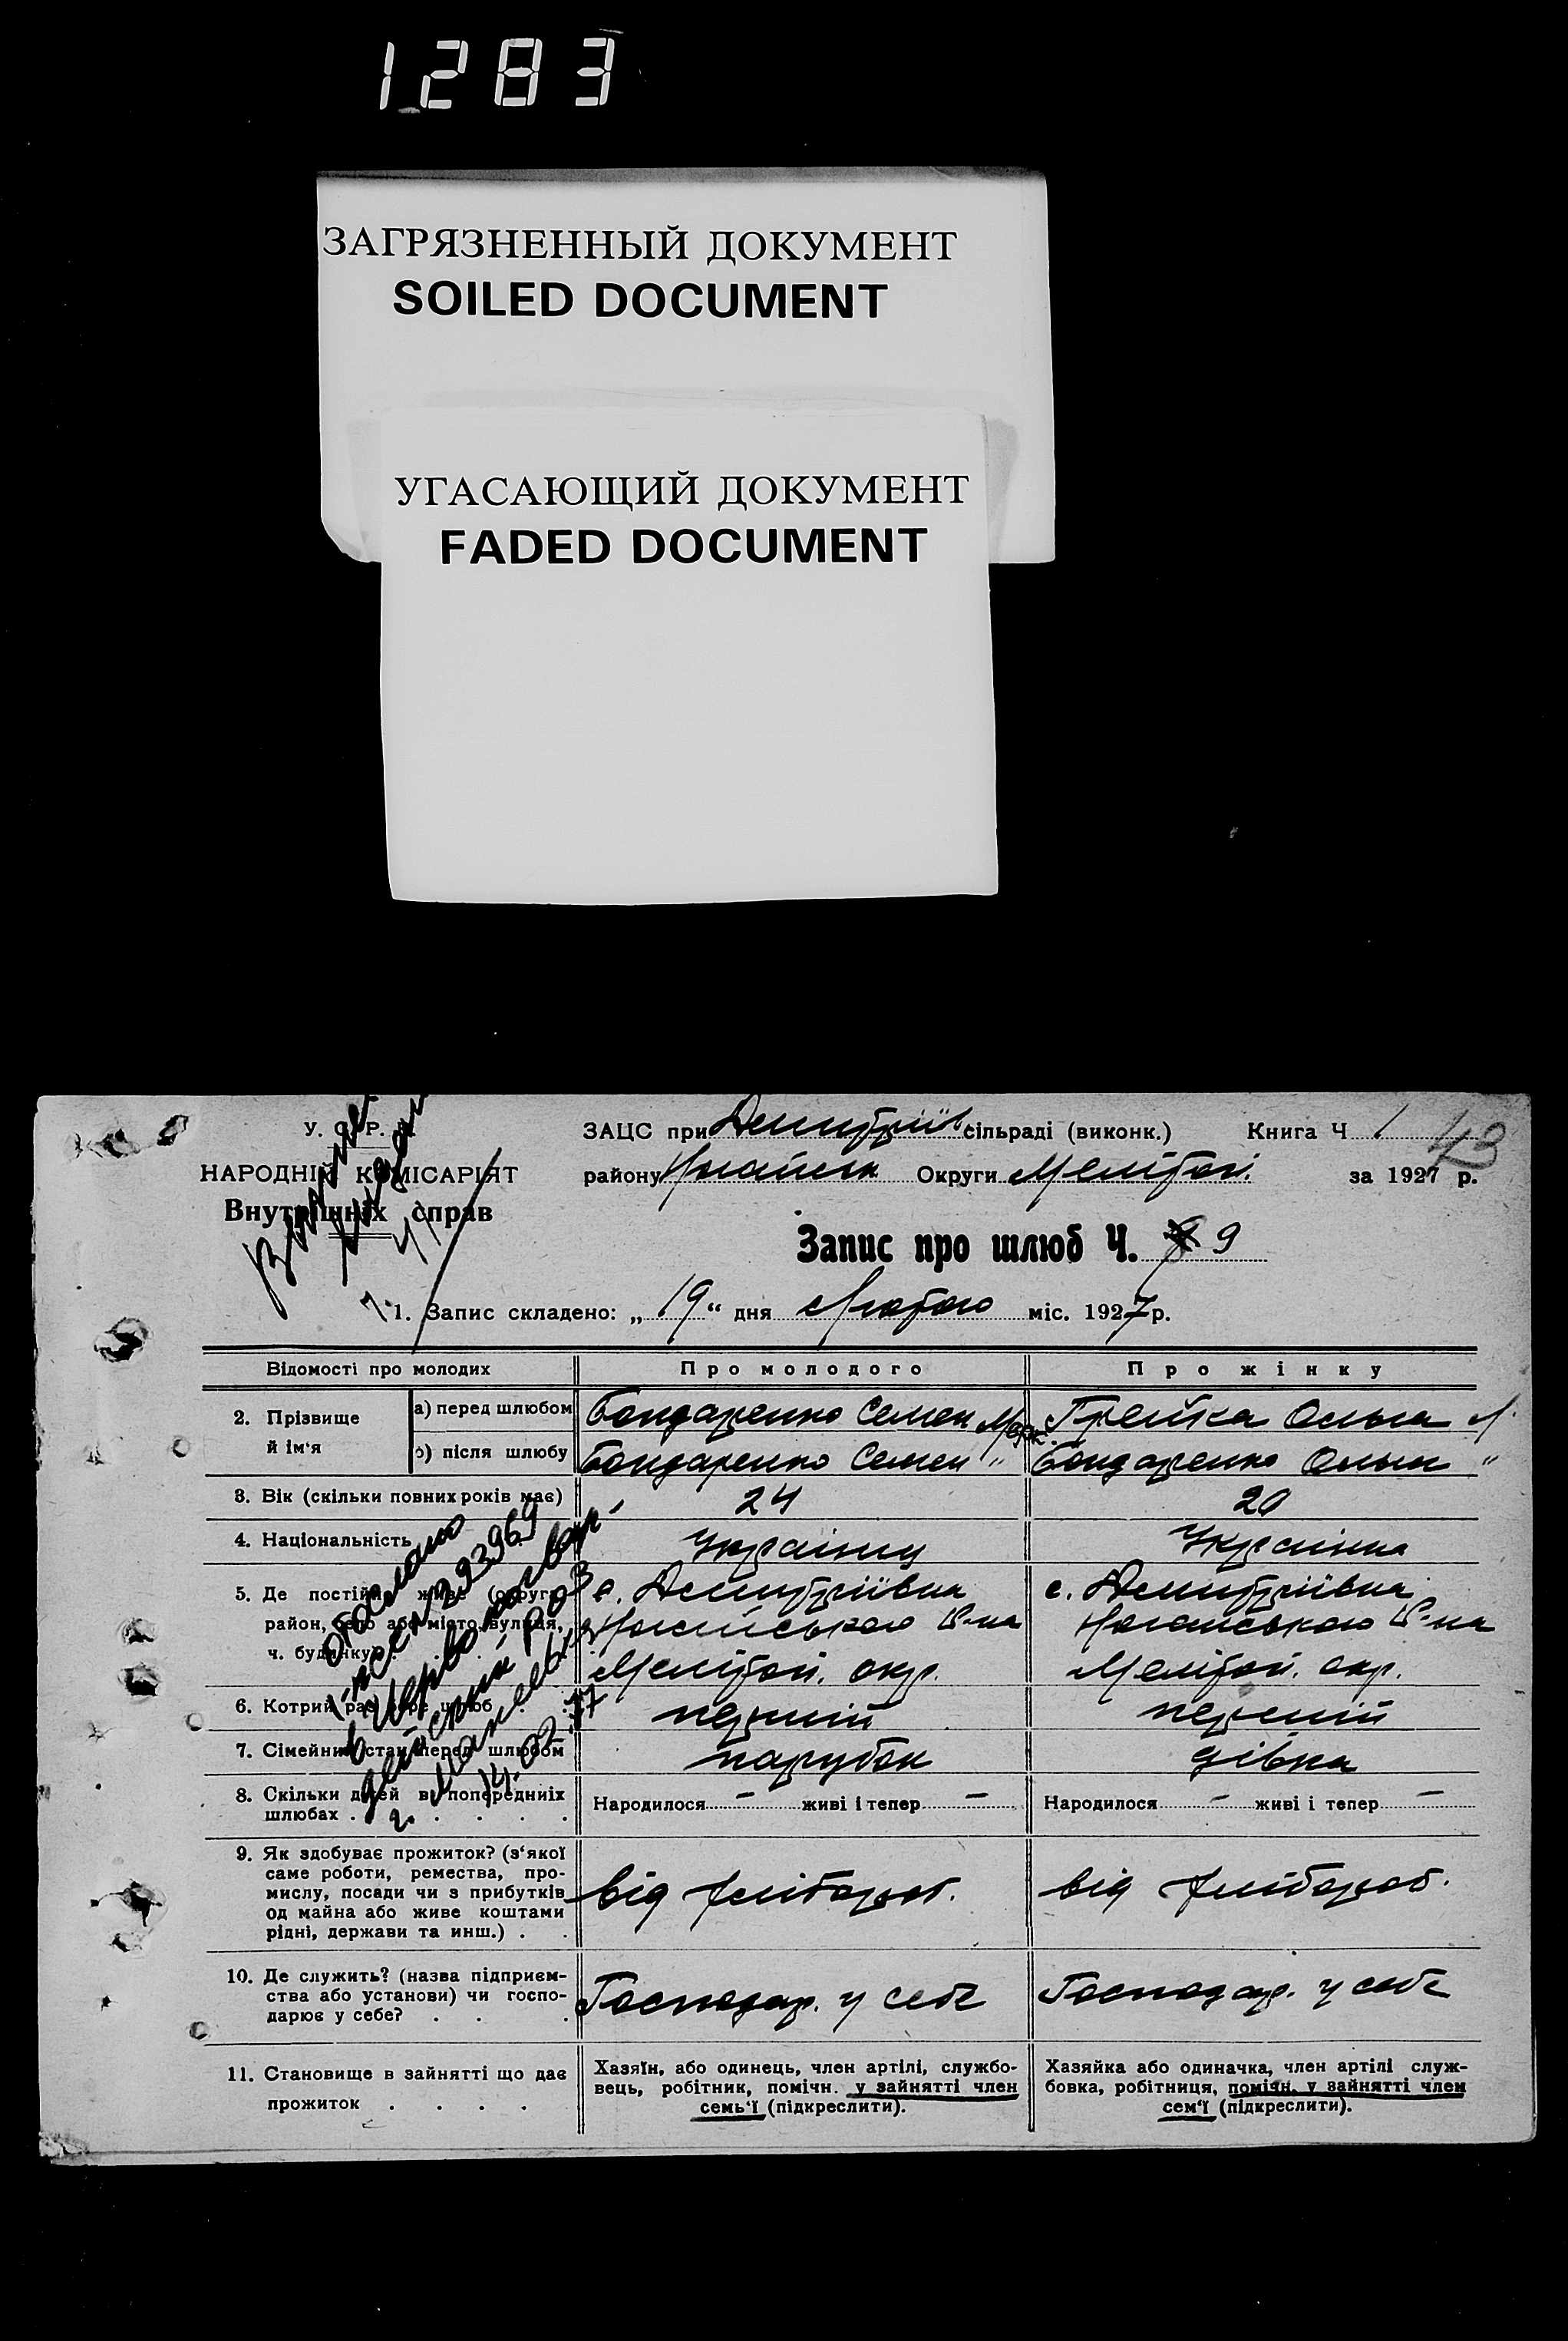 1283
ЗАГРЯЗНЕННЫЙ ДОКУМЕНТ
SOILED DOCUMENT
УГАСАЮЩИЙ ДОКУМЕНТ
FADED DOCUMENT
У. С. Р. Р.
НАРОДНІЙ КОМІСАРІЯТ
Внутрішніх справ
ЗАЦС при Дмитріїв. сільраді (виконк.) Книга Ч 1 43
району Ногайськ Округи Мелітоп. за 1927 р.
Запис про шлюб Ч. 9
1. Запис складено: „19“ дня Лютого міс. 1927 р.
Відомості про молодих Про молодого Про жінку
2. Прізвище й ім'я
а) перед шлюбом Бондаренко Семен Мерк. Грейка Ольга
о) після шлюбу Бондаренко Семен " Бондаренко Ольга "
3. Вік (скільки повних років має) 24 20
4. Національність Украінец Украінка
5. Де постійно живе (округа, район, село або місто, вулиця, ч. будинку)
с. Дмитріївка с. Дмитріївка
Ногайського Р-на Ногайського Р-на
Мелітоп. окр. Мелітоп. окр.
6. Котрий раз бере шлюб перший перший
7. Сімейний стан перед шлюбом парубок дівка
8. Скільки дітей в попередніх шлюбах . . . . .
Народилося — живі і тепер — Народилося — живі і тепер —
9. Як здобуває прожиток? (з'якої
саме роботи, ремества, про-
мислу, посади чи з прибутків
од майна або живе коштами
рідні, держави та инш.) . .
від хлібороб. від хлібороб.
10. Де служить? (назва підприєм-
ства або установи) чи госпо-
дарює у себе? . . .
Господар. у себе Господар. у себе
11. Становище в зайнятті що дає
прожиток . . . .
Хазяїн, або одинець, член артілі, службо-
вець, робітник, помічн. у зайнятті член
семь'ї (підкреслити).
Хазяйка або одиначка, член артілі служ-
бовка, робітниця, помічн. у зайнятті член
сем'ї (підкреслити).
отослано
14.02.77